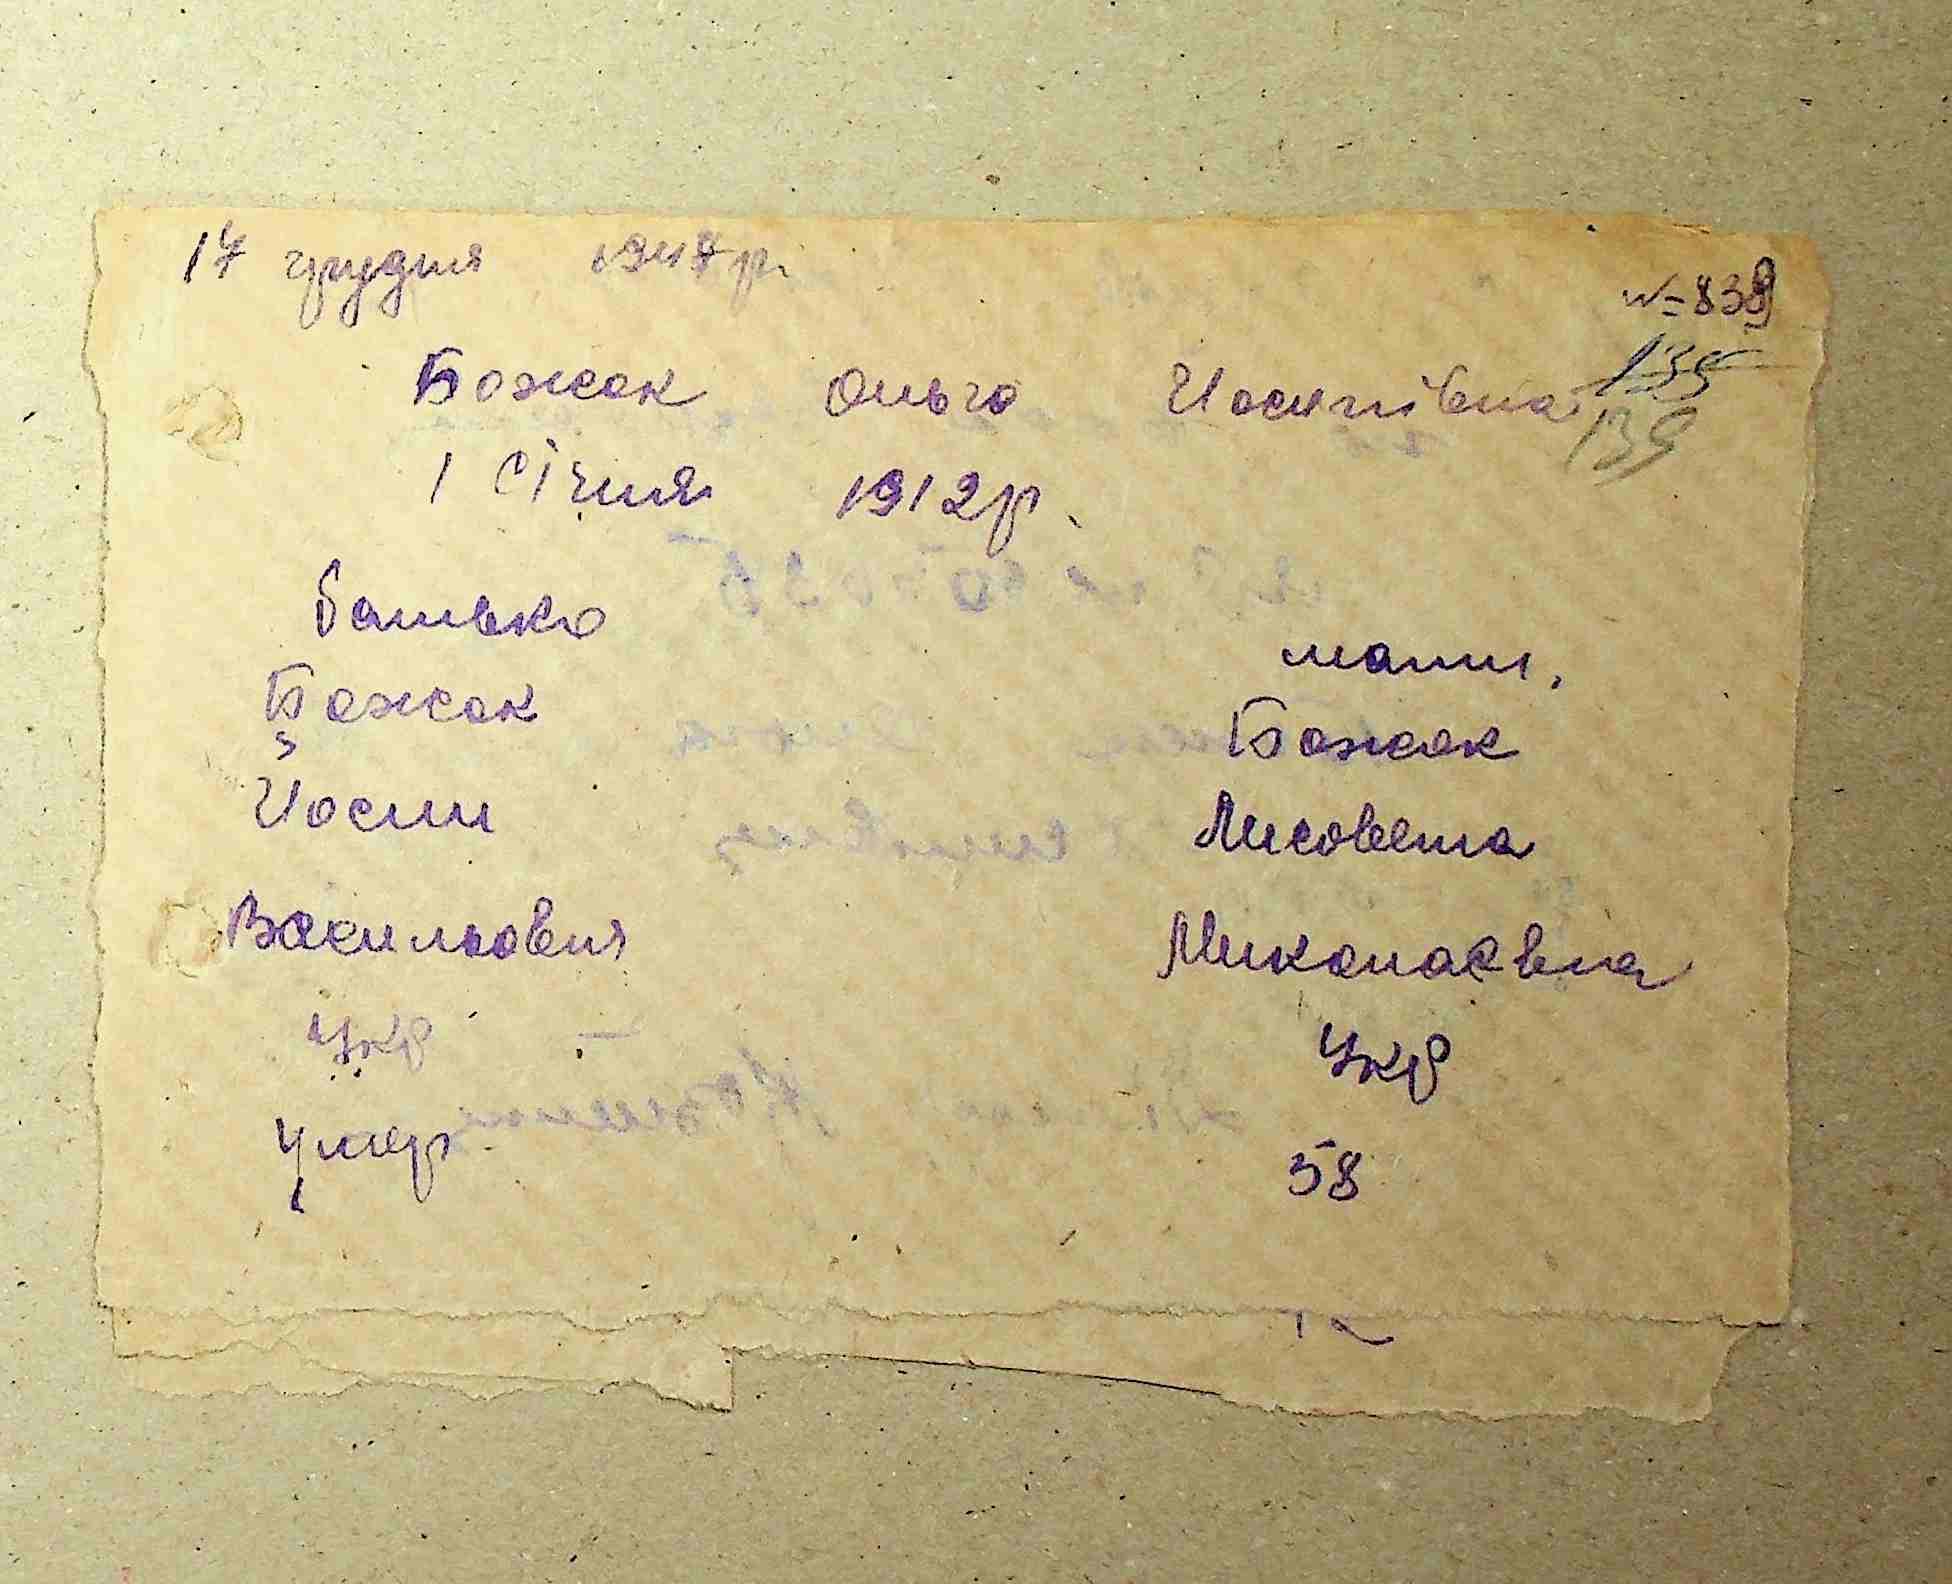 17 грудня 1947 р.
№ 839
Божок Ольга Йосипівна
135
139
1 січня 1912 р.
батько
мати,
Божок
Божок
Йосип
Лисовета
Васильович
Миколаєвна
Укр
Укр
умер
58